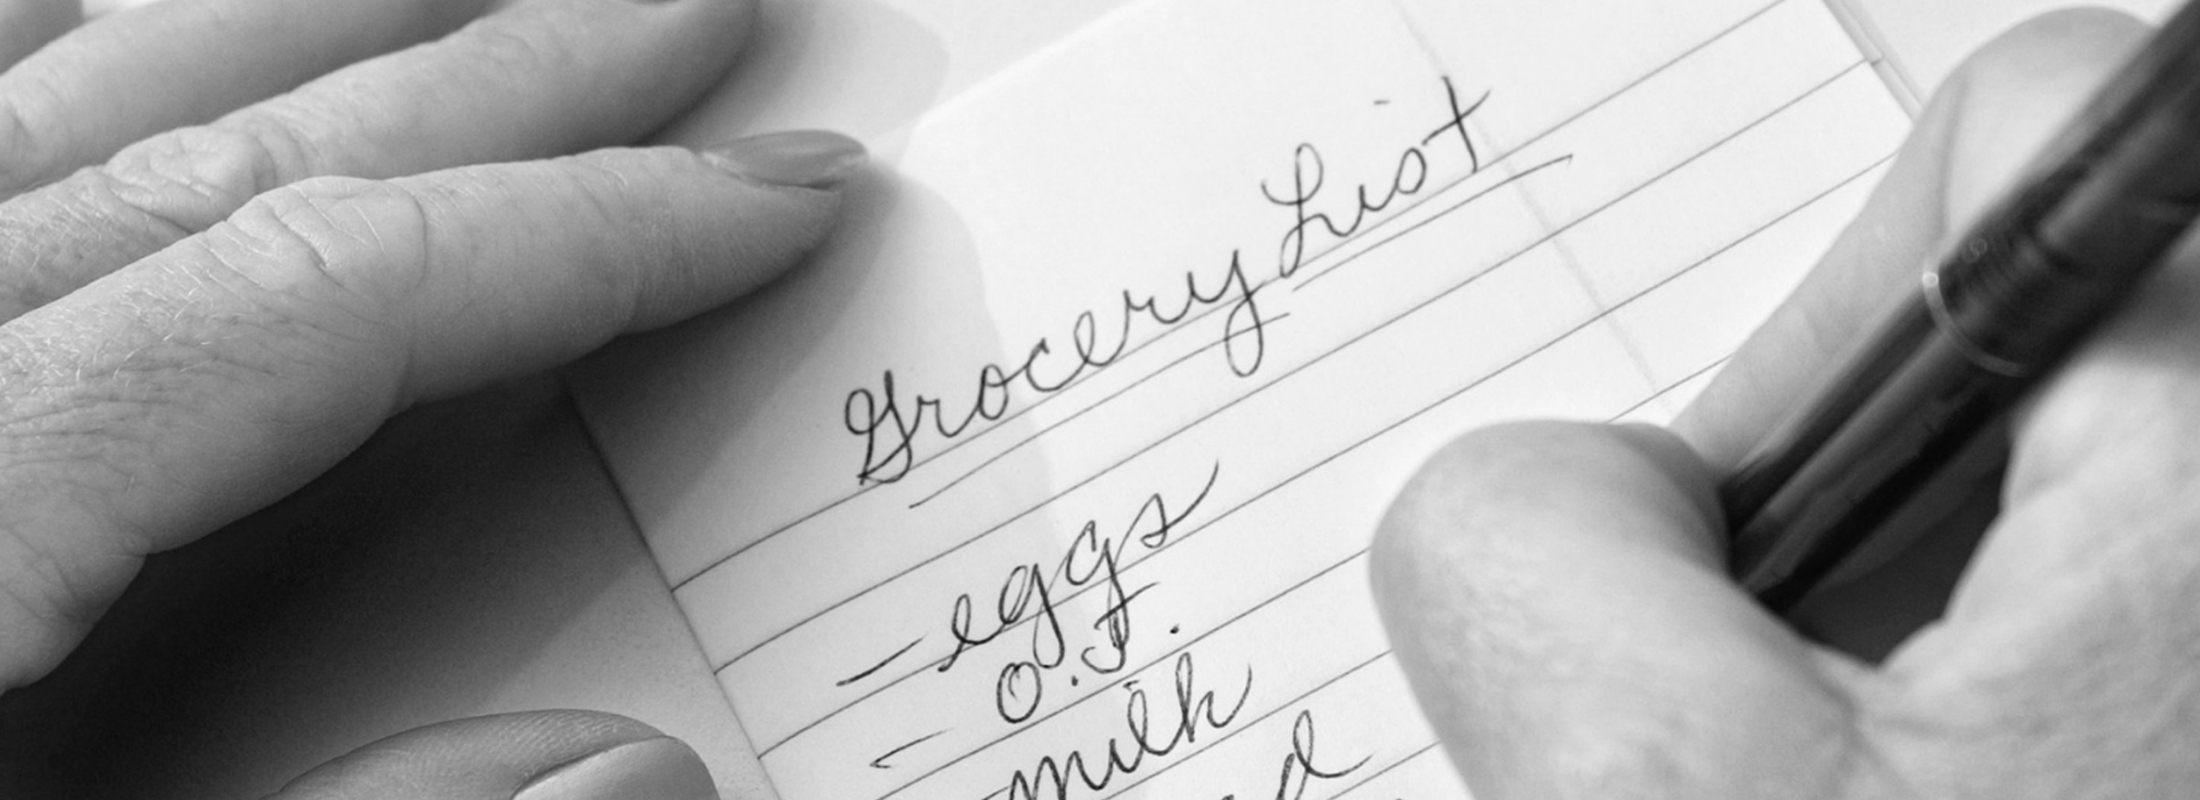 Grocery List
- eggs
O.J.
- milk